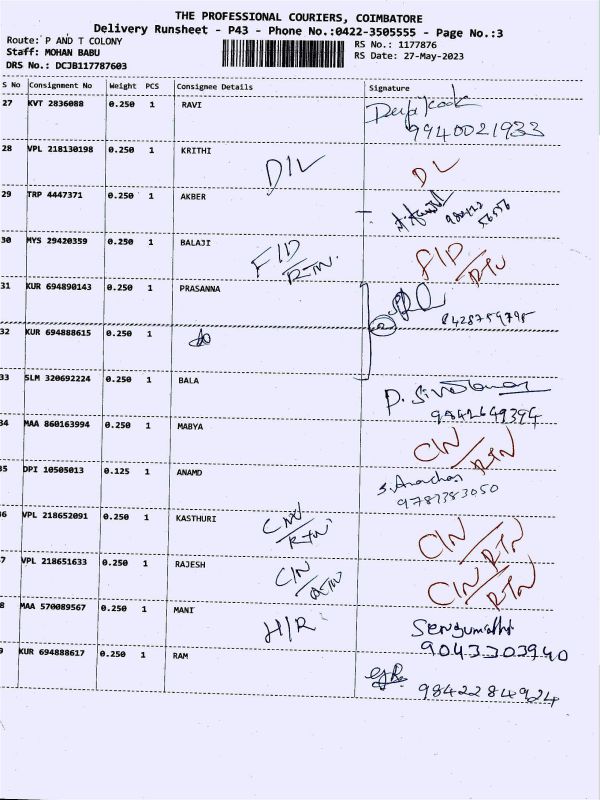 THE PROFESSIONAL COURIERS, COIMBATORE
Delivery Runsheet - P43 - Phone No.:0422-3505555 - Page No.:3
Route: P AND T COLONY
Staff: MOHAN BABU
DRS No.: DCJB117787603
RS No.: 1177876
RS Date: 27-May-2023
S No Consignment No Weight PCS Consignee Details Signature
27 KVT 2836088 0.250 1 RAVI
9940021933
28 VPL 218130198 0.250 1 KRITHI D/L DL
29 TRP 4447371 0.250 1 AKBER
30 MYS 29420359 0.250 1 BALAJI F/D RTN. F/D RTN
31 KUR 694890143 0.250 1 PRASANNA
8428759795
32 KUR 694888615 0.250 1 do
33 SLM 320692224 0.250 1 BALA
9842649394
34 MAA 860163994 0.250 1 MABYA C/N RTN
35 DPI 10505013 0.125 1 ANAMD
9787383050
36 VPL 218652091 0.250 1 KASTHURI C/N RTN C/N RTN
7 VPL 218651633 0.250 1 RAJESH C/N RTN C/N RTN
8 MAA 570089567 0.250 1 MANI H/R
9043303940
9 KUR 694888617 0.250 1 RAM
9842284924